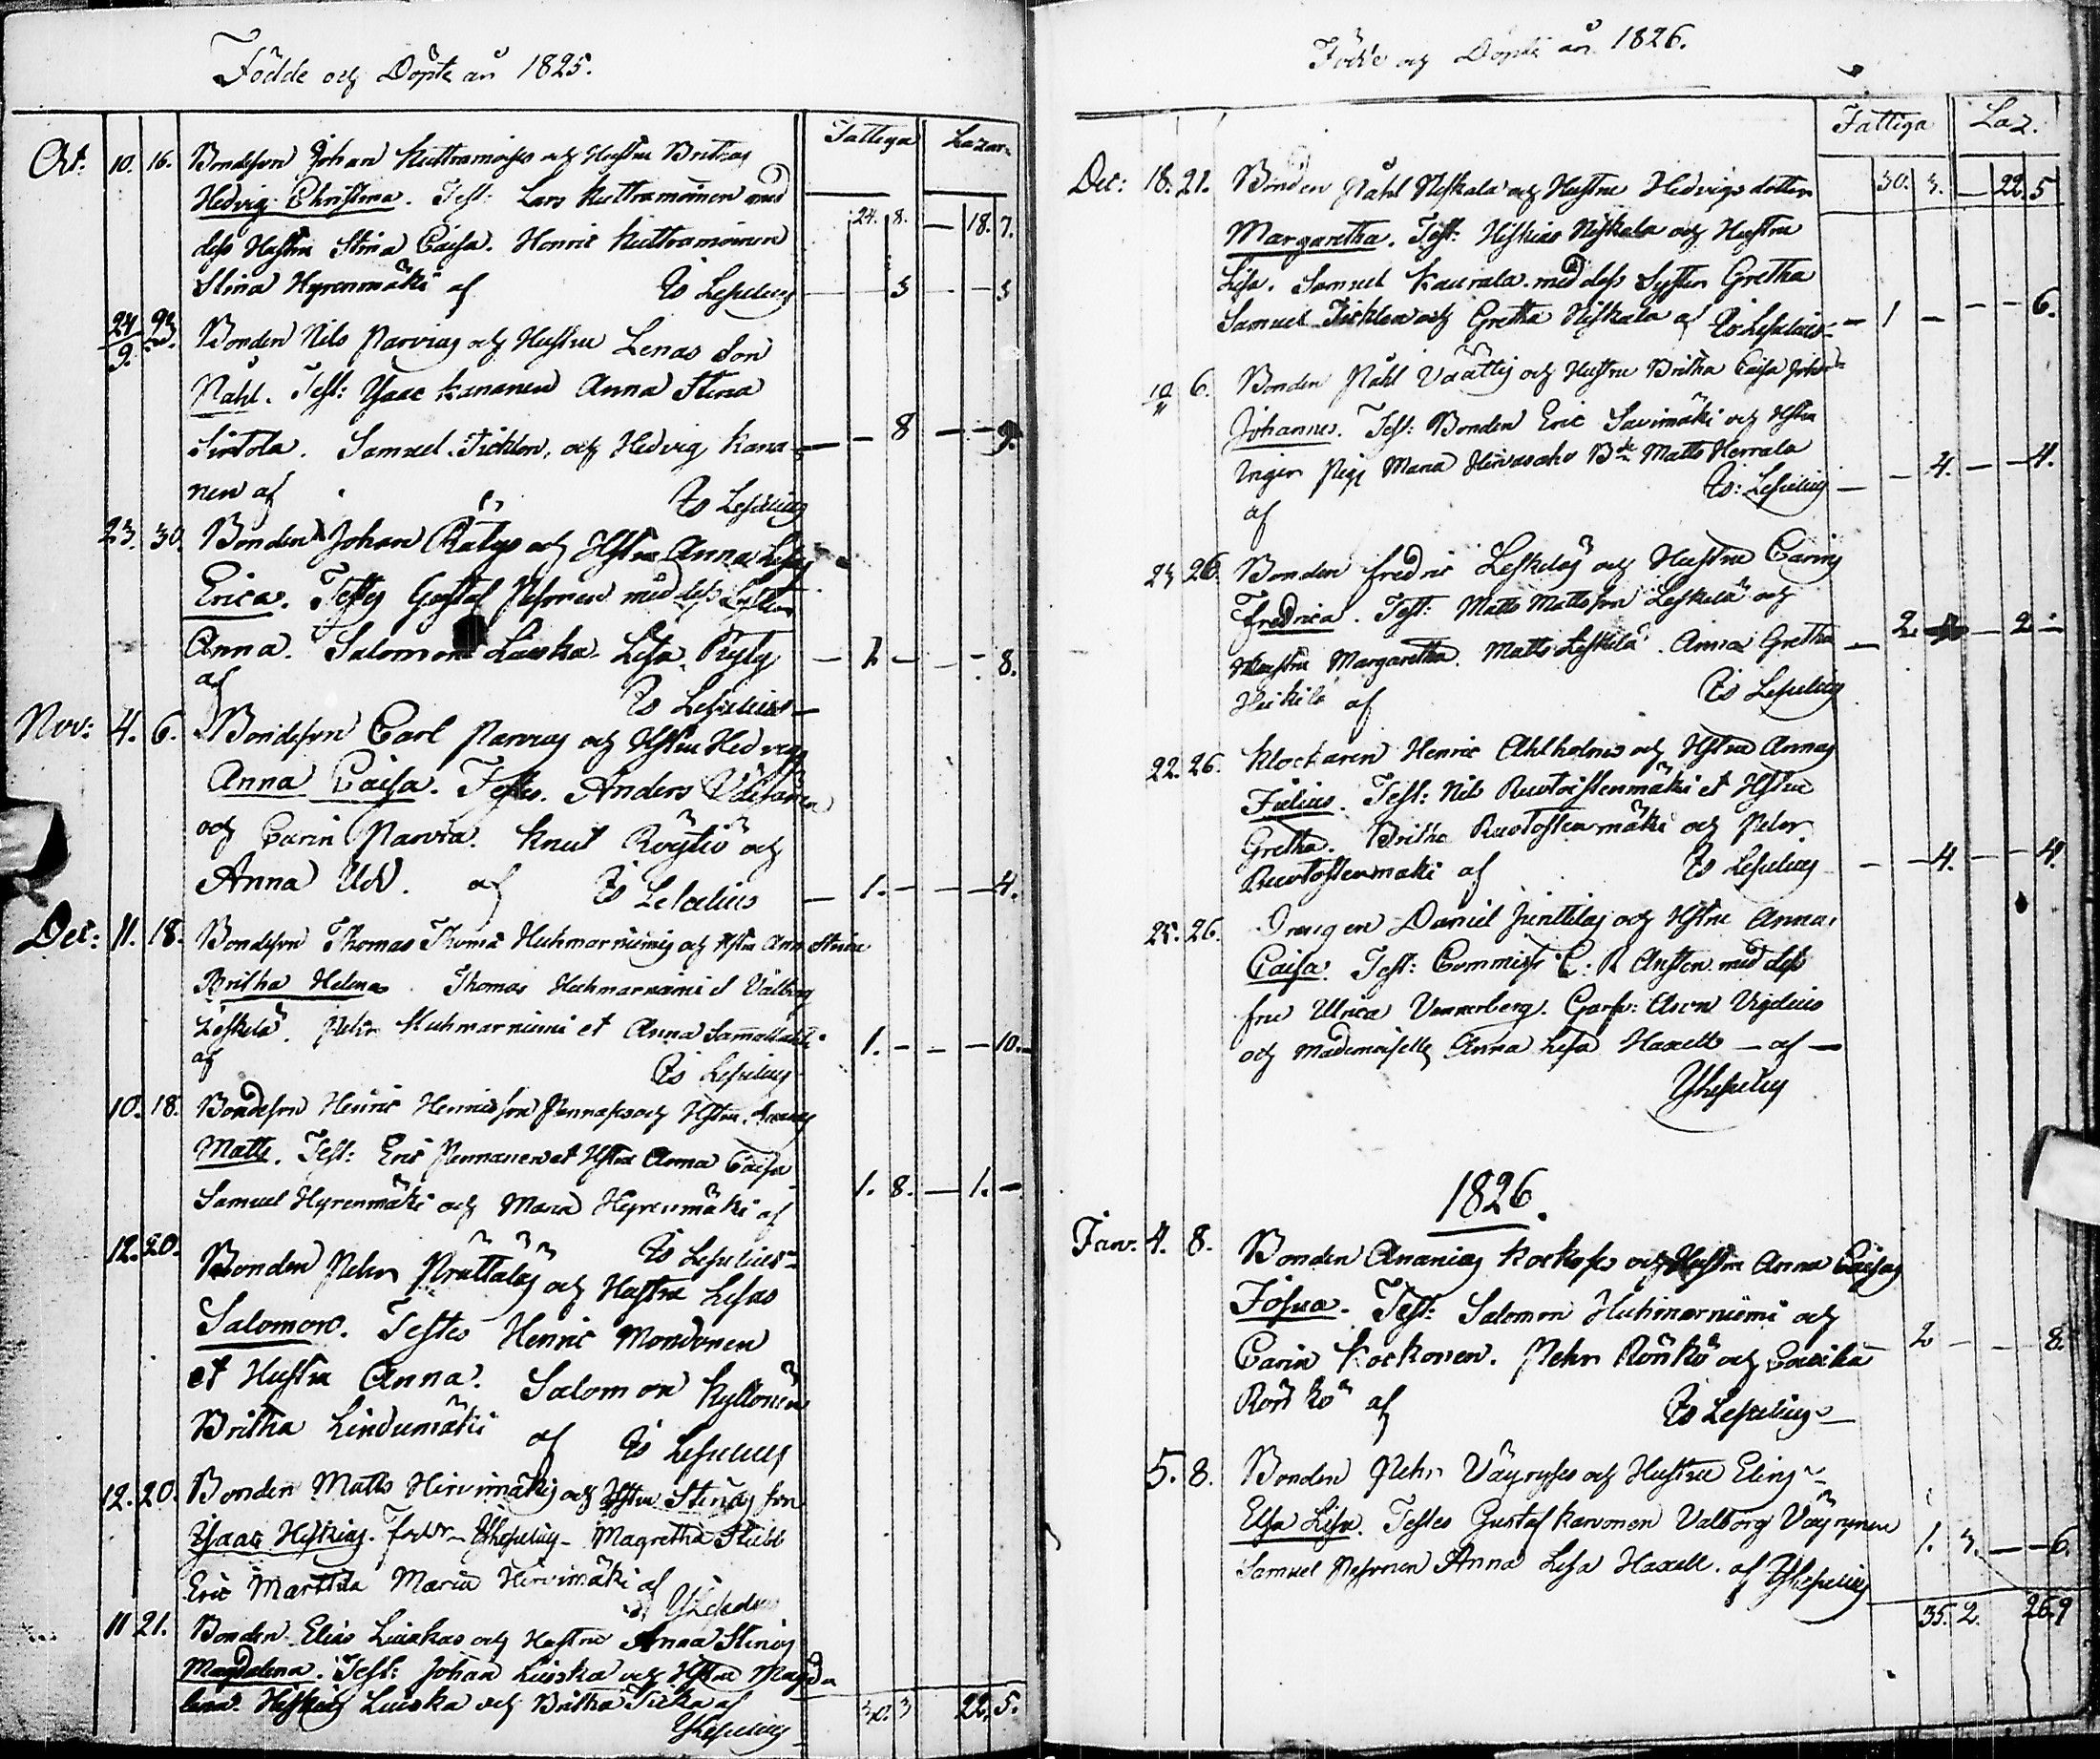 Födde och Döpte år 1825.
Fattiga Lazar:
Oct: 10. 16. Bondeson Johan Kuttramoises och Hustru Brithas
Hedvig Christina. Test: Lars Kuttramoinen med
dess Hustru Stina Caisa. Henric Kuttramoinen
24. 8. — 18. 7.
Stina Hyrenmäki af Es Leselius — 3 — — 3
24/9. 23. Bonden Nils Parvias och Hustru Lenas Son
Påhl. Test: Ysaac Kananen Anna Stina
Sirtola. Samuel Ticklen, och Hedvig Kana- — — 8 — — 9.
nen af Es Leselius
23. 30. Bonden Johan Rätys och Hstru Anna Lisas
Erica. Testes Gustaf Pesonen med dess Syster
Anna. Salomon Laska Lisa Ryty — 1 — — — 8.
af Es Leselius
Nov: 4. 6. Bondeson Carl Parvias och Hstru Hedvigs
Anna Caisa. Testes. Anders Väisänen
och Carin Parvia. Knut Röytiö och
Anna Udd. af Es Leselius — 1. — — — 4.
Dec: 11. 18. Bondeson Thomas Thomä Huhmarniemis och Hstru Anna Stinas
Britha Helena. Thomas Huhmarniemi et Valborg
Leskelä. Pehr Huhmarniemi et Anna 1. — — — 10. —
af Es Leselius
10. 18. Bondeson Henric Henricsson Pennases och Hstru Annas
Matts. Test: Eric Pennanen et Hstru Anna Caisa
Samuel Hyrenmäki och Maria Hyrenmäki af 1. 8. — 1. —
Es Leselius
12. 20. Bonden Pehr Prättäläs och Hustru Lisas
Salomon. Testes Henric Mondonen
et Hustru Anna. Salomon Kyllönen
Britha Lindumäki af Es Leselius
12. 20. Bonden Matts Hirvimäkis och Hstru Stinas son
Ysaac Heskias. YLeselius — Magretha Stubb
Eric Marttila Maria Hirvimäki af
YLeselius
11 21. Bonden Elias Luiskas och Hustru Anna Stinas
Magdalena. Test: Johan Luiska och Hstru Magda
lena. Heskias Luiska och Britha Tiska af 30. 3 22. 5.
YLeselius
Födde och Döpte år 1826.
Fattiga Laz.
Dec: 18. 21. Bonden Påhl Niskala och Hustru Hedvigs dotter 30. 3. — 22. 5
Margaretha. Test: Hiskias Niskala och Hustru
Lisa. Samuel Kaurala med dess Syster Gretha
Samuel Ticklen och Gretha Niskala af Es Leselius — 1 — — — 6.
19/11 6. Bonden Påhl Väättis och Hustru Britha Caisa
Johannes. Test: Bonden Eric Savimäki och Hstru
Inger Pig: Maria Hirvasaho Bde Matts Herrala
af Es: Leselius — — 4. — — 4.
24 26. Bonden Fredric Leskeläs och Hustru Carins
Fredrica. Test: Matts Mattsson Leskelä och
Hustru Margaretha. Matts Leskelä. Anna Gretha — 2. — 2 —
Heikilä af Es Leselius
22. 26. Klockaren Henric Ahlholms och Hstru Annas
Julius. Test: Nils Ruotoistenmäki et Hstru
Gretha. Britha Ruotostenmäki och Petter
Ruotostenmäki af Es Leselius — — 4. — — 4.
25. 26. Drängen Daniel Junttilas och Hstru Annas
Caisa. Test: Commiss: C: R Austen med dess
fru Ulrica Vennerberg. Garfv: Aron Vigelius
och Mademoiselle Anna Lisa Haxell — af —
YLeselius
1826.
Jan: 4. 8. Bonden Ananias Kockos och Hustru Anna Caisas
Josua. Test: Salomon Huhmarniemi och
Carin Kockonen. Pehr Rönkö och 2 — — — 8.
Rönkö af Es Leselius —
5. 8. Bonden Pehr Väyryses och Hustru Elins
Elsa Lisa. Testes Gustaf Karvonen Valborg Väyrynen
Samuel Pesonen Anna Lisa Haxell. af YLeselius 1. 3. — — 6.
35. 2. 26. 9